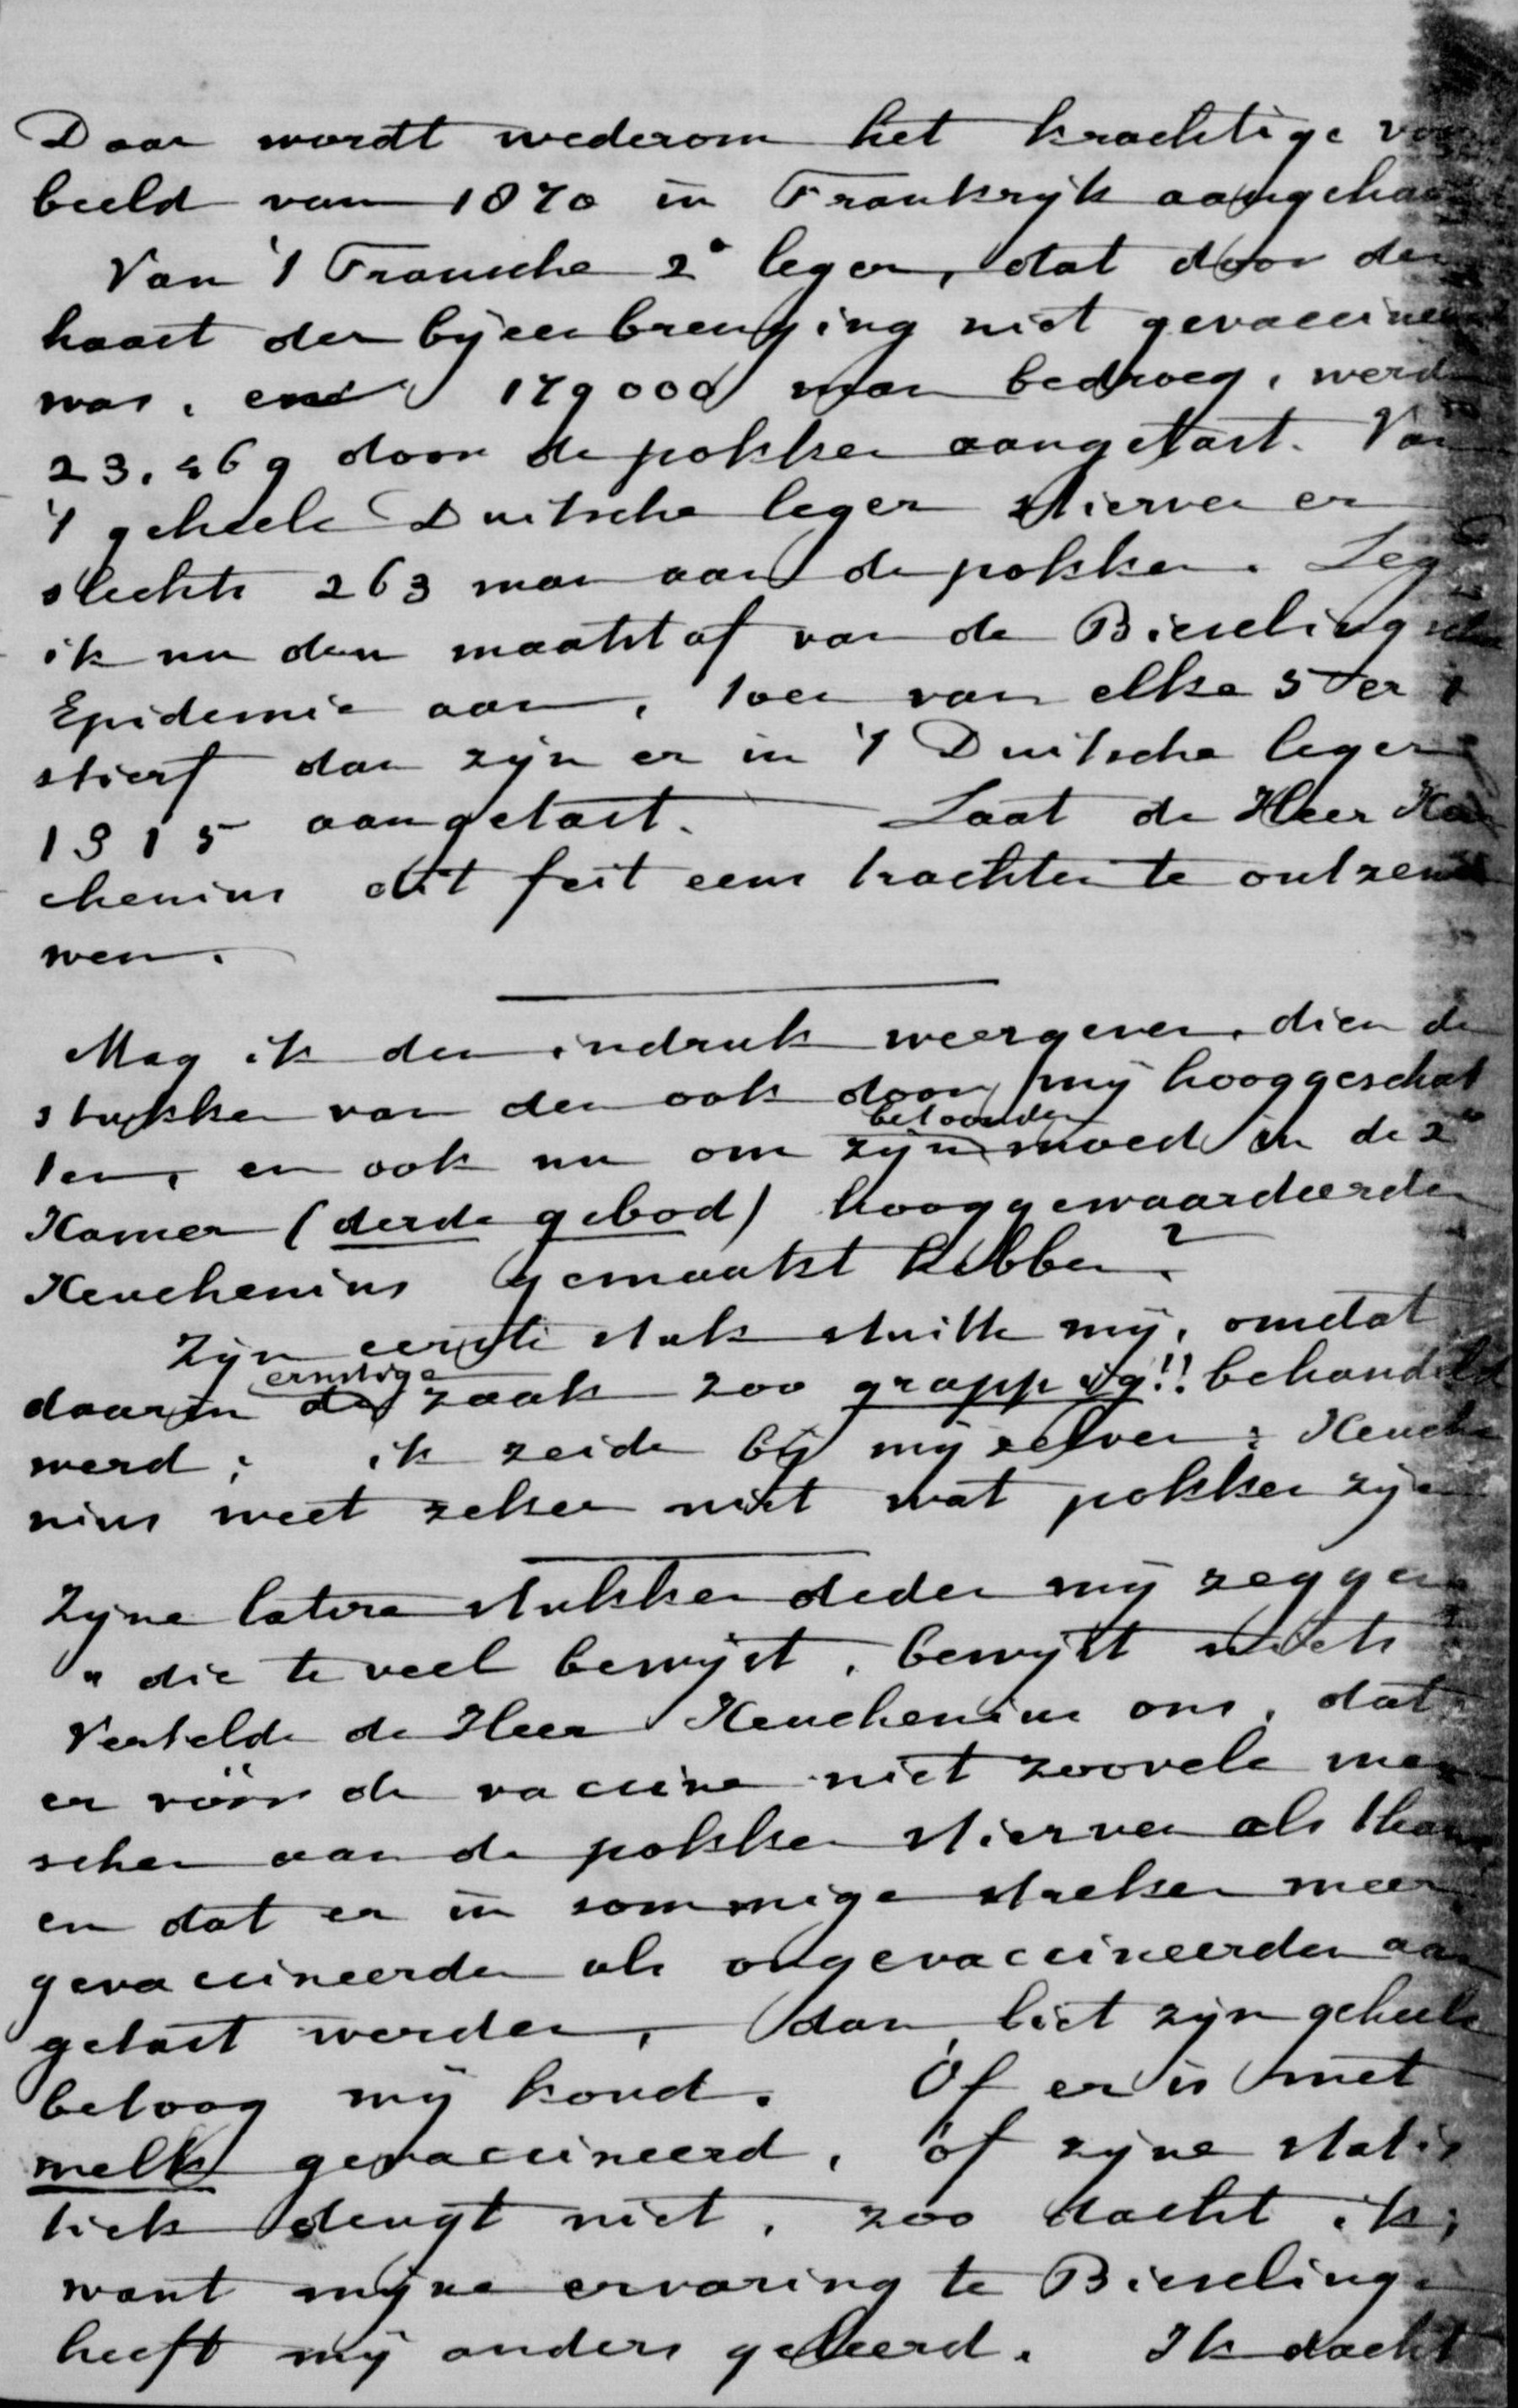 Daar wordt wederom het krachtige voor
beeld van 1870 in Frankrijk aangehaa
Van 't Fransche 2e leger, dat door den
haast der bijeenbrenging niet gevaccineer
was, en 179000 man bedroeg, werden
23.469 door de pokken aangetast. Van
't geheele Duitsche leger stierven er
slechts 263 man aan de pokken. Leg
ik nu den maatstaf van de Bieselingsche
Epidemie aan, toen van elke 5 er 1
stierf dan zijn er in 't Duitsche leger
1315 aangetast. Laat de Heer Keu
chenius dit feit eens trachten te ontzenu
wen.
Mag ik den indruk weergeven, dien de
stukken van den ook door mij hooggeschat
ten, en ook nu om zijn betoonden moed in de 2e
Kamer (derde gebod) hooggewaardeerden
Keuchenius gemaakt hebben?
Zijn eerste stuk stuitte mij, omdat
daarin de ernstige zaak zoo grappig!! behandeld
werd; ik zeide bij mij zelven: Keuche
nius weet zeker niet wat pokken zijn
Zijne latere stukken deden mij zeggen
"die te veel bewijst, bewijst niets
Vertelde de Heer Keuchenius ons, dat
er vóór de vaccine niet zoovele men
schen aan de pokken stierven als thans
en dat er in sommige streken meer
gevaccineerden als ongevaccineerden aan
getast werden, dan liet zijn geheele
betoog mij koud. Òf er is met
melk gevaccineerd, òf zijne statis
tiek deugt niet, zoo dacht ik;
want mijne ervaring te Bieselinge
heeft mij anders geleerd. Ik dacht